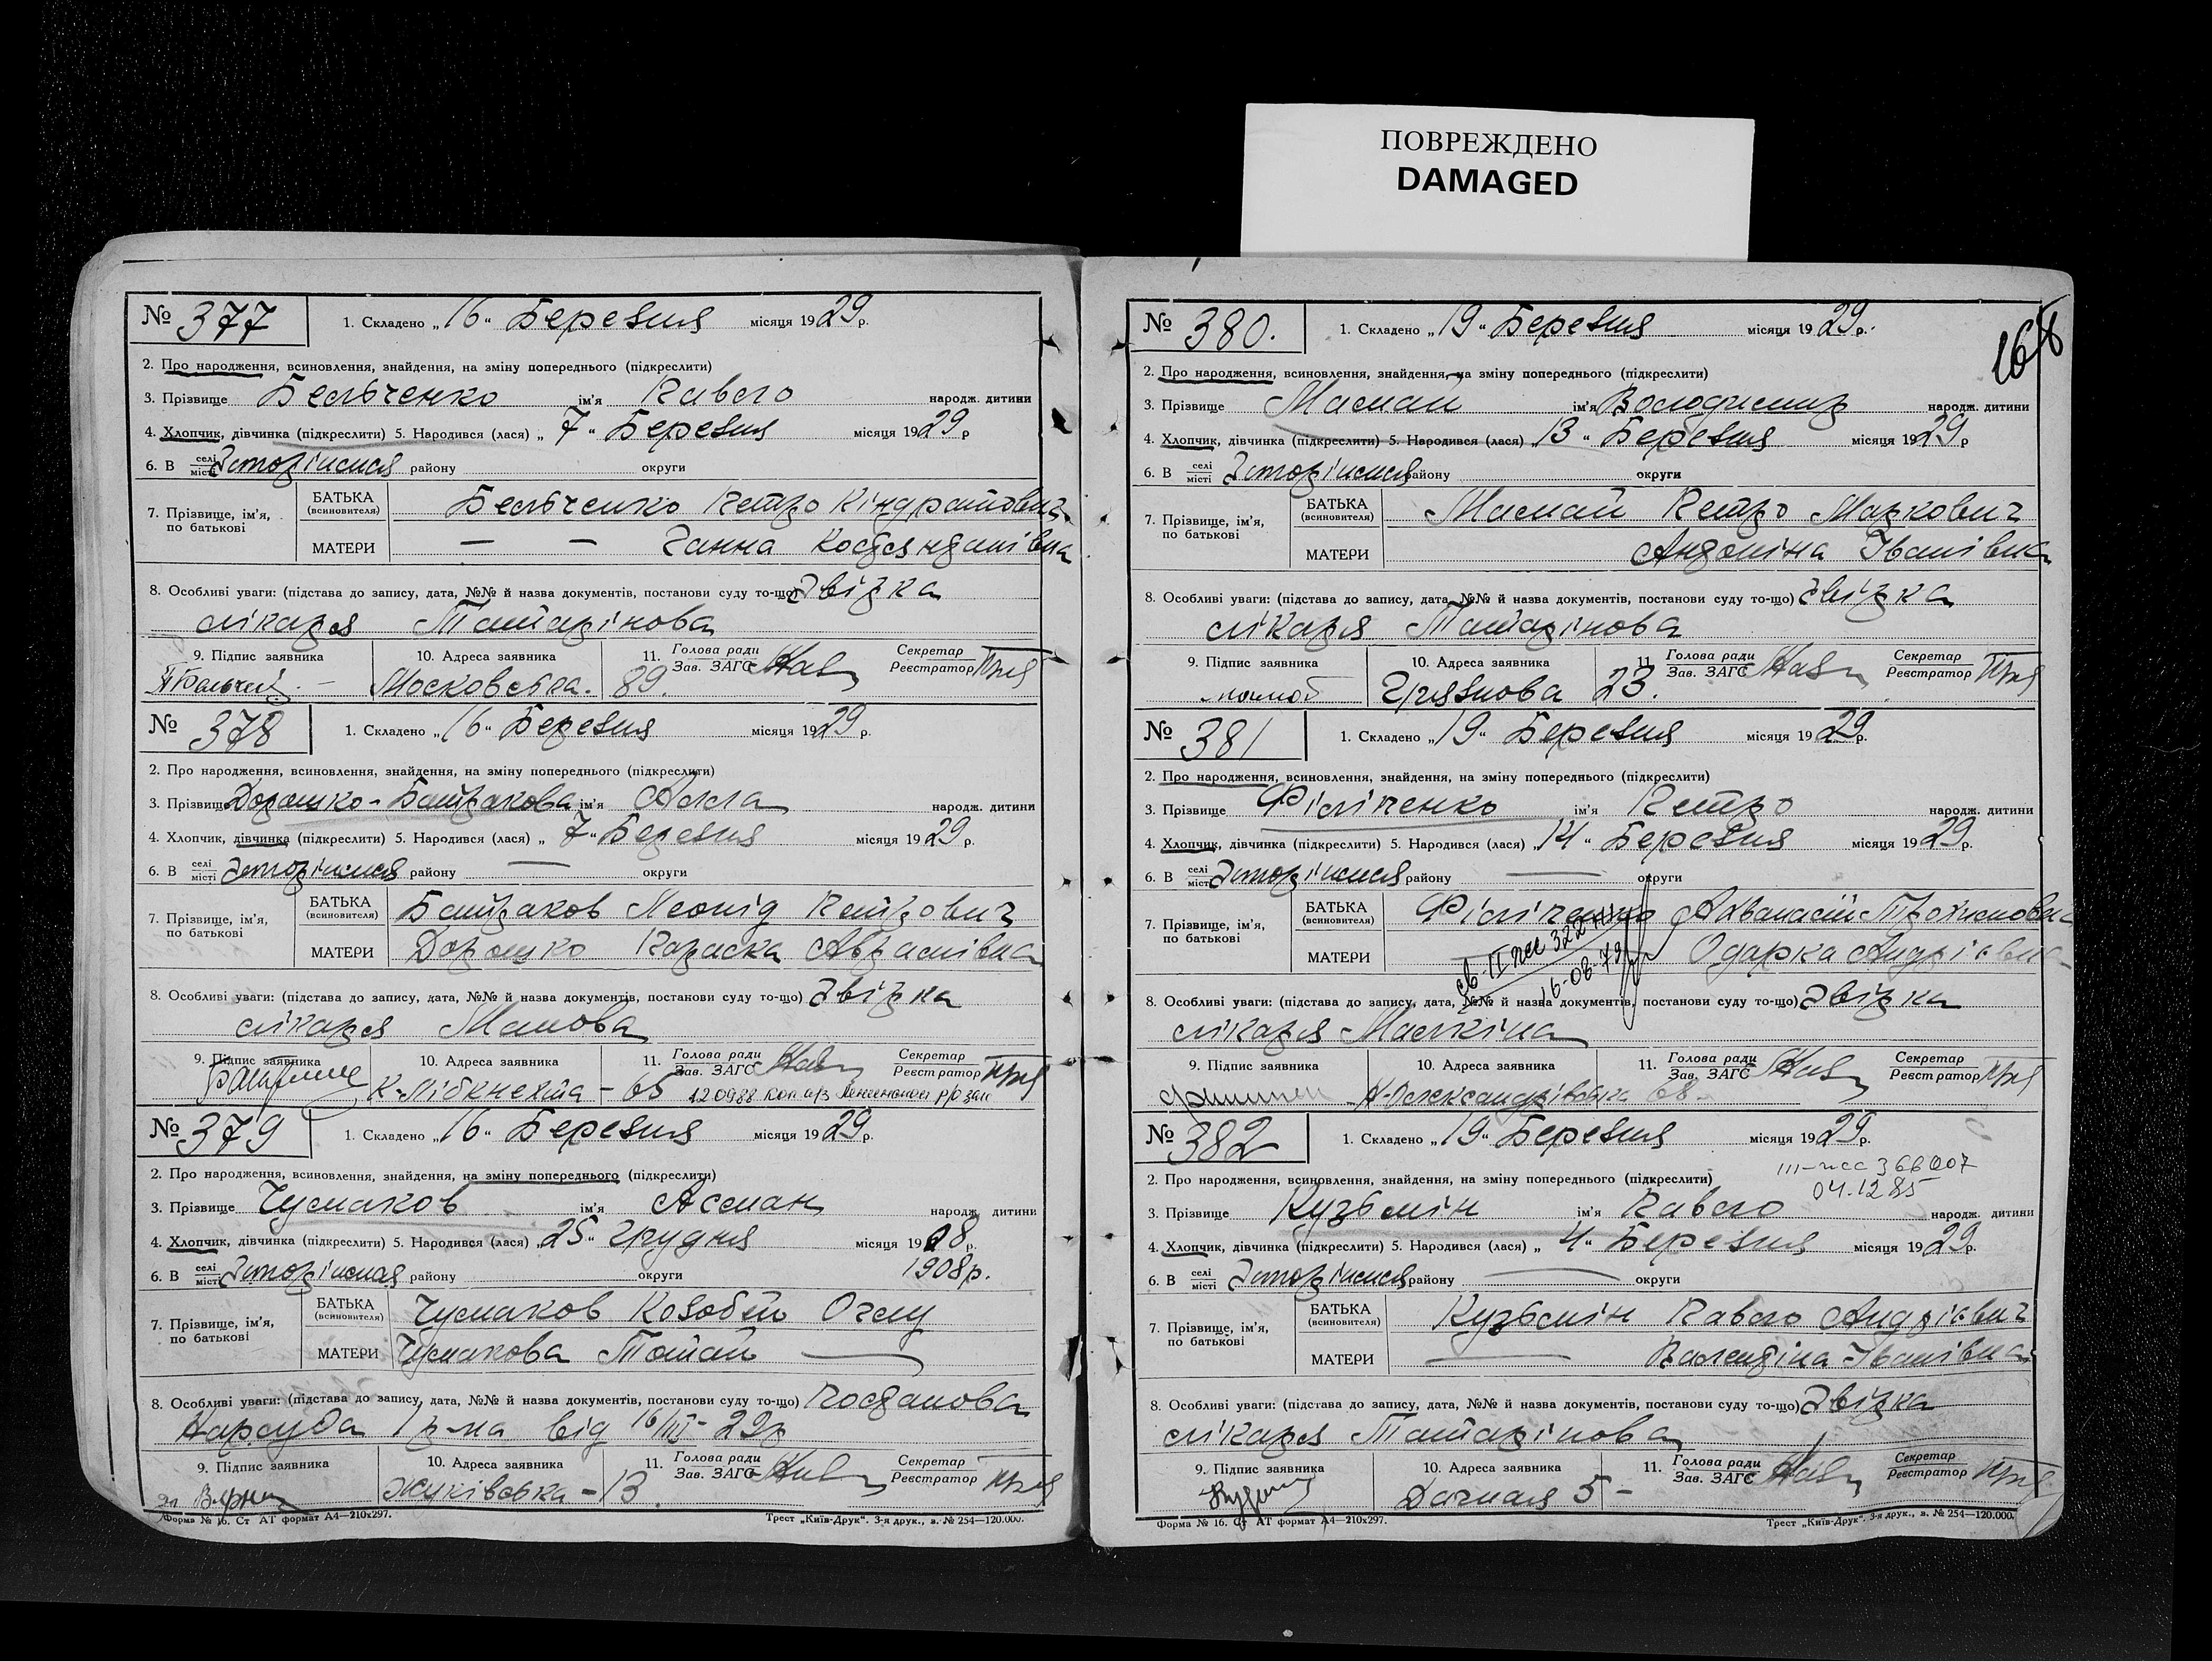 ПОВРЕЖДЕНО
DAMAGED
№ 377 1. Складено „16“ Березня місяця 1929 р.
2. Про народження, всиновлення, знайдення, на зміну попереднього (підкреслити)
3. Прізвище Бельченко ім'я Павло народж. дитини
4. Хлопчик, дівчинка (підкреслити) 5. Народився (лася) „7“ Березня місяця 1929 р
6. В селі місті Запоріжжя району округи
7. Прізвище, ім'я, по батькові БАТЬКА (всиновителя) Бельченко Петро Кіндратович
МАТЕРИ — — Ганна Костянтинівна
8. Особливі уваги: (підстава до запису, дата, №№ й назва документів, постанови суду то-що) Звірка
лікаря Татарінова
9. Підпис заявника 10. Адреса заявника 11. Голова ради Зав. ЗАГС Секретар Реєстратор
Московська. 89.
№ 378 1. Складено „16“ Березня місяця 1929 р.
2. Про народження, всиновлення, знайдення, на зміну попереднього (підкреслити)
3. Прізвище Дорошко-Батракова ім'я Алла народж. дитини
4. Хлопчик, дівчинка (підкреслити) 5. Народився (лася) „7“ Березня місяця 1929 р.
6. В селі місті Запоріжжя району — округи
7. Прізвище, ім'я, по батькові БАТЬКА (всиновителя) Батраков Леонід Петрович
МАТЕРИ Дорошко Параска Аврамівна
8. Особливі уваги: (підстава до запису, дата, №№ й назва документів, постанови суду то-що) Звірка
лікаря Манова
9. Підпис заявника 10. Адреса заявника 11. Голова ради Зав. ЗАГС Секретар Реєстратор
К-Лібкнехта - 65 120988
№ 379 1. Складено „16“ Березня місяця 1929 р.
2. Про народження, всиновлення, знайдення, на зміну попереднього (підкреслити)
3. Прізвище Чумаков ім'я Асман народж. дитини
4. Хлопчик, дівчинка (підкреслити) 5. Народився (лася) „25“ Грудня місяця 1908 р.
6. В селі місті Запоріжжя району округи 1908р.
7. Прізвище, ім'я, по батькові БАТЬКА (всиновителя) Чумаков
МАТЕРИ Чумакова —
8. Особливі уваги: (підстава до запису, дата, №№ й назва документів, постанови суду то-що) Постанова
Нарсуда 1 р-на від 16/III-29р
9. Підпис заявника 10. Адреса заявника 11. Голова ради Зав. ЗАГС Секретар Реєстратор
Жуківська - 13
Форма № 16. Ст АТ формат А4—210х297. Трест „Київ-Друк“. 3-я друк., в. № 254—120.000.
168
№ 380. 1. Складено „19“ Березня місяця 1929 р.
2. Про народження, всиновлення, знайдення, на зміну попереднього (підкреслити)
3. Прізвище Мамай ім'я Володимир народж. дитини
4. Хлопчик, дівчинка (підкреслити) 5. Народився (лася) „13“ Березня місяця 1929 р
6. В селі місті Запоріжжя району округи
7. Прізвище, ім'я, по батькові БАТЬКА (всиновителя) Мамай Петро Маркович
МАТЕРИ Антоніна Іванівна
8. Особливі уваги: (підстава до запису, дата, №№ й назва документів, постанови суду то-що) Звірка
лікаря Татарінова
9. Підпис заявника 10. Адреса заявника 11. Голова ради Зав. ЗАГС Секретар Реєстратор
Грязнова 23.
№ 381 1. Складено „19“ Березня місяця 1929 р.
2. Про народження, всиновлення, знайдення, на зміну попереднього (підкреслити)
3. Прізвище Філіпенко ім'я Петро народж. дитини
4. Хлопчик, дівчинка (підкреслити) 5. Народився (лася) „14“ Березня місяця 1929 р.
6. В селі місті Запоріжжя району — округи
7. Прізвище, ім'я, по батькові БАТЬКА (всиновителя) Філіпенко
МАТЕРИ Одарка Андріївна
16-06-79
8. Особливі уваги: (підстава до запису, дата, №№ й назва документів, постанови суду то-що) Звірка
лікаря Малкіна
9. Підпис заявника 10. Адреса заявника 11. Голова ради Зав. ЗАГС Секретар Реєстратор
68.
№ 382 1. Складено „19“ Березня місяця 1929 р.
2. Про народження, всиновлення, знайдення, на зміну попереднього (підкреслити)
04.12 85
3. Прізвище Кузьмін ім'я Павло народж. дитини
4. Хлопчик, дівчинка (підкреслити) 5. Народився (лася) „4“ Березня місяця 1929 р.
6. В селі місті Запоріжжя району — округи
7. Прізвище, ім'я, по батькові БАТЬКА (всиновителя) Кузьмін Павло Андрієвич
МАТЕРИ — Валентіна Іванівна
8. Особливі уваги: (підстава до запису, дата, №№ й назва документів, постанови суду то-що) Звірка
лікаря Татарінова
9. Підпис заявника 10. Адреса заявника 11. Голова ради Зав. ЗАГС Секретар Реєстратор
Дачная 5 -
Форма № 16. Ст АТ формат А4—210х297. Трест „Київ-Друк“. 3-я друк., в. № 254—120.000.